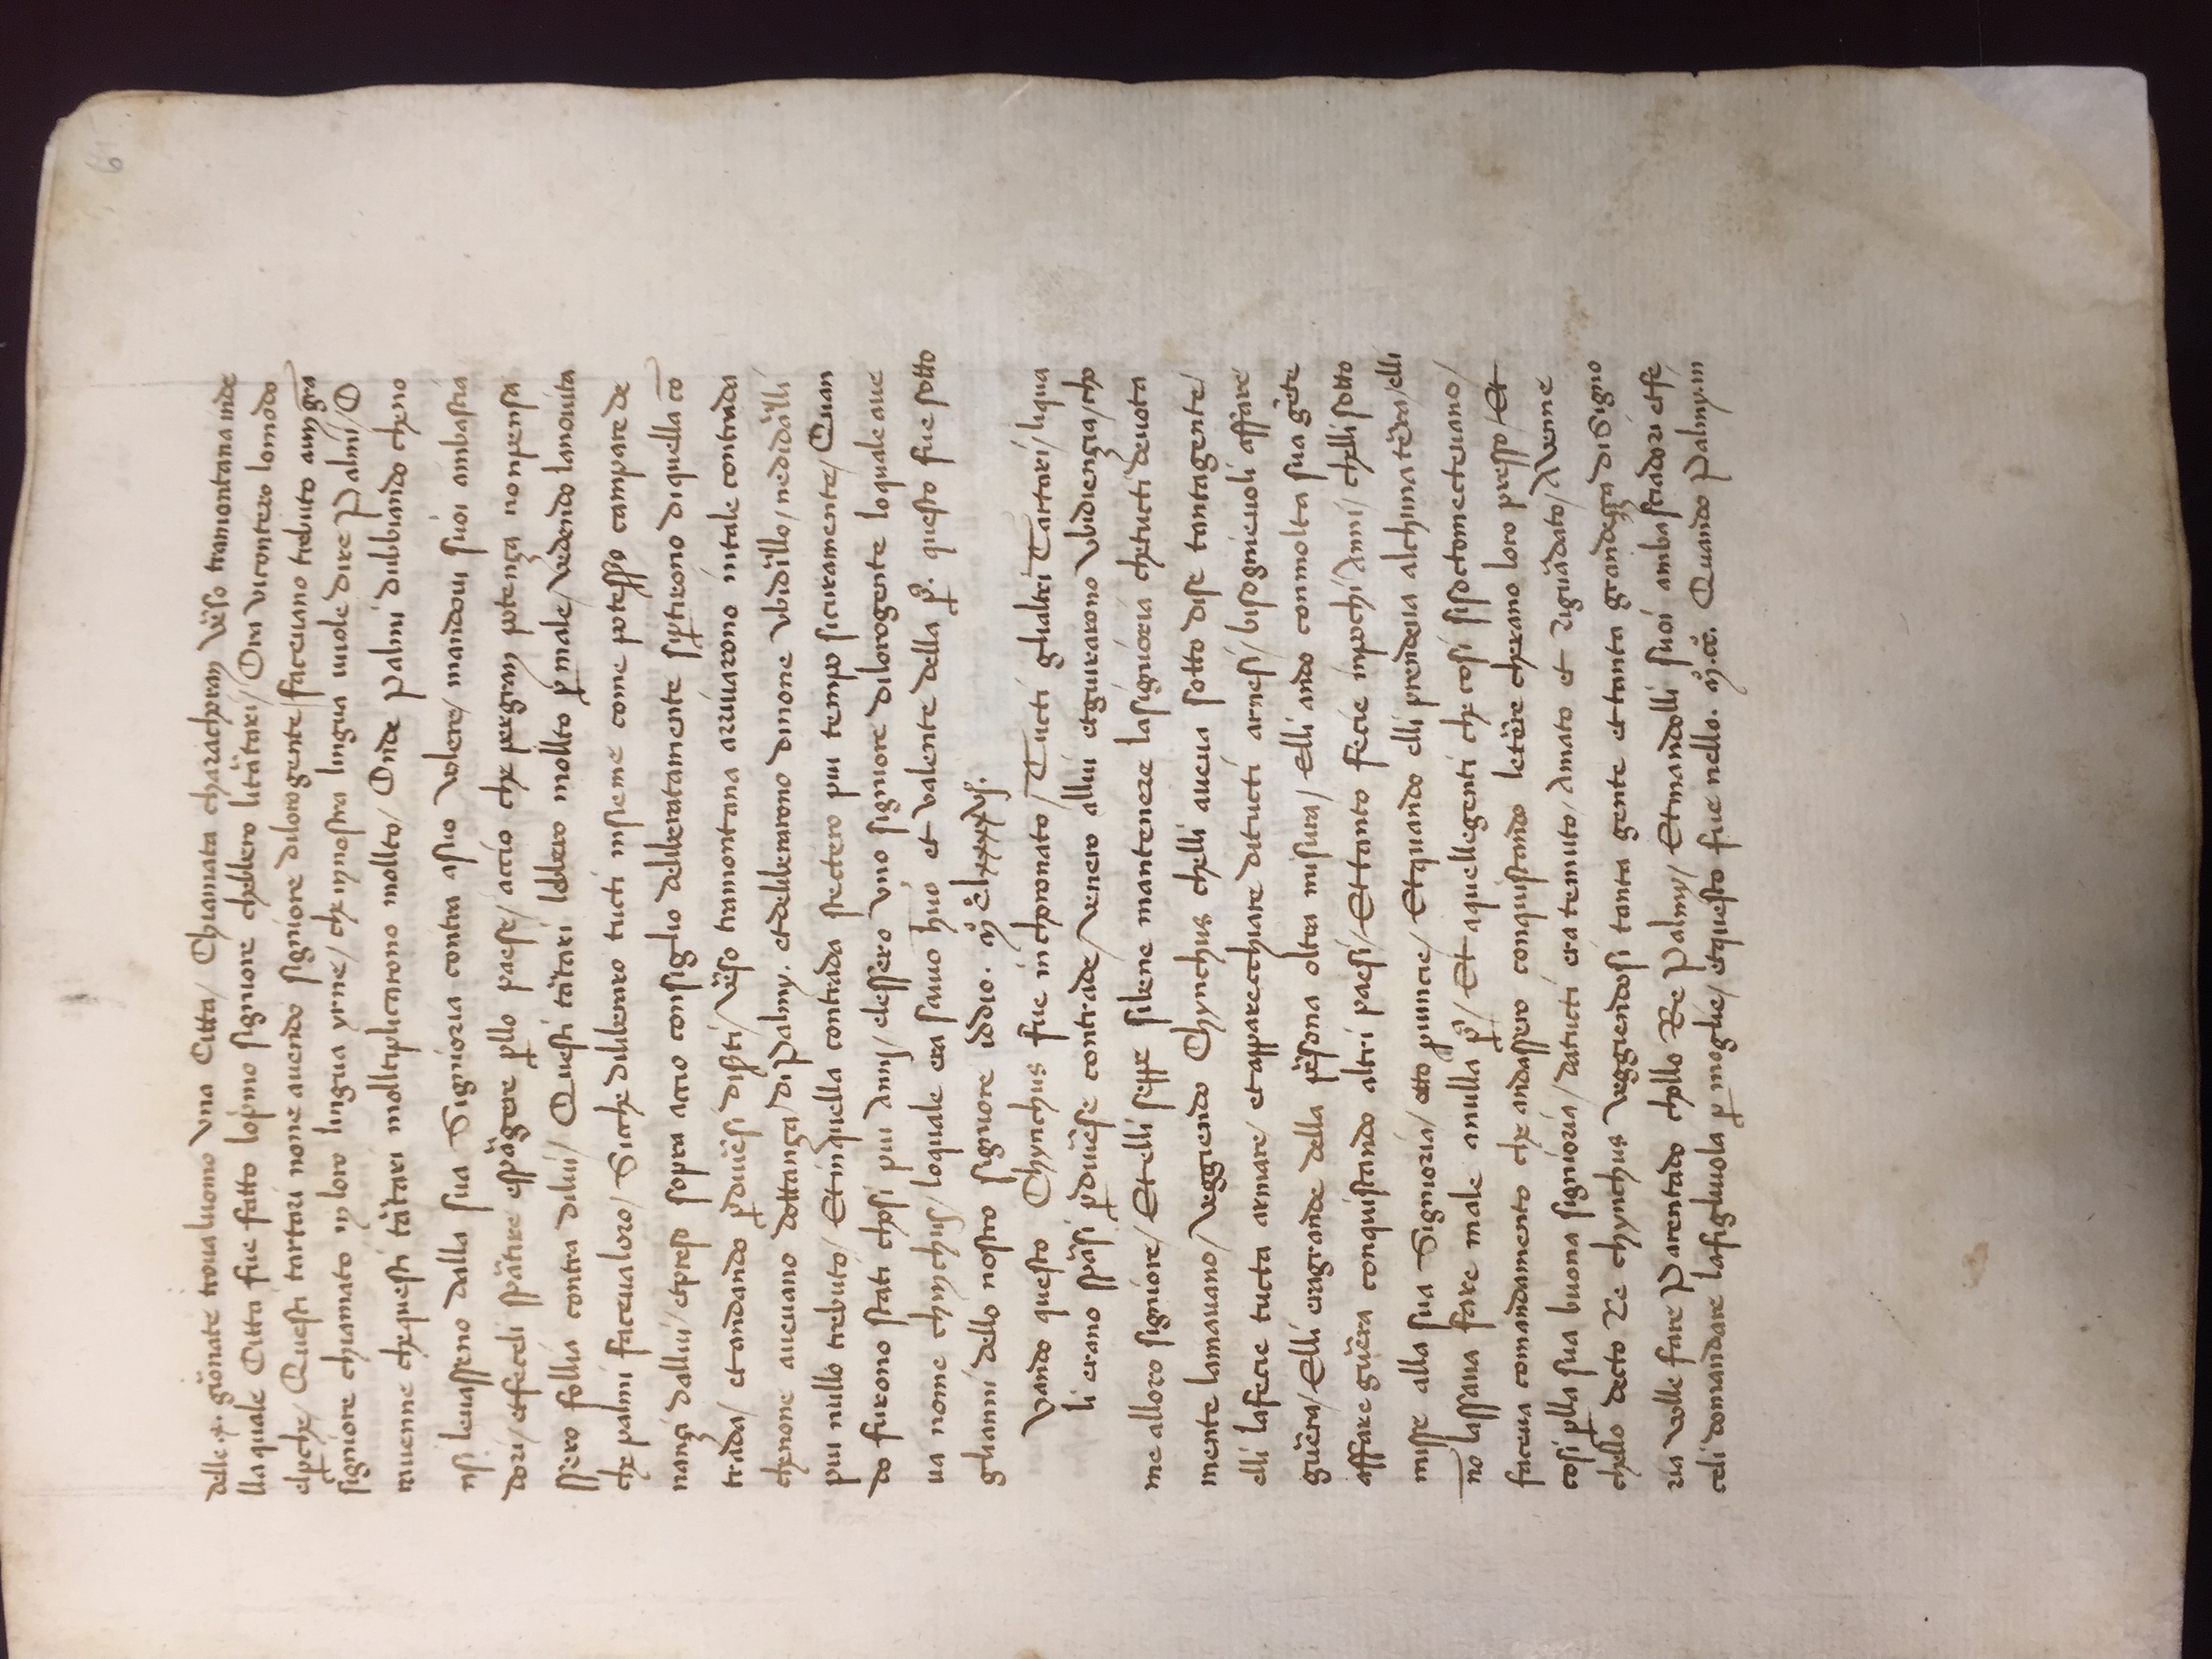 6
delle .x. giõnate troua luomo vna Citta / Chiamata charachoray vẽso tramontana inde
lla quale Citta fue fatto lop̃mo signiore chebbero litãtari / Ora vicontero lomodo
elꝑche / Questi tartari none auendo signiore dilorogente / faceuano trebuto auy grã
signiore chiamato iy loro lingua yrne / che iynostra lingua uuole dire Palmi / O
rauenne chequesti tãtari molltiplicarono mollto / Onde palmi dubbiando cheno
nsi leuasseno dalla sua Signioria contra asuo volere / mandoui suoi ambascia
dori / etfeceli spãtire espãgere ꝑllo paese / accio che pergray potenza nonpensa
ssero follia contra dilui / Questi tãtari lebbero mollto ꝑ male / vedendo lanouita
che palmi faceualoro / Sicche diliberaro tucti insieme come potessero campare de
nanzi dallui / etpreso sopra accio consiglio deliberatamente siꝑtirono diquella cõ
trada / et andando ꝑ diuẽsi disẽti / vẽso tramontana arriuarono intale contrada
chenone aueuano dottanza / di Palmy . et deliberarono dinone vbidĩllo / nedidãlli
piu nullo trebuto / Etinquella contrada stectero piu tempo sicuramente / Quan
do furono stati chosi piu Annj / elessero vno signiore dilorogente loquale aue
ua nome chiychus / loquale era sauio huõ et valente della ꝑ̃. questo fue sotto
glianni dello nostro signiore iddio . Mº Cº lxxxxvjº.
Vando questo Chynchus fue in choronato / Tucti glialtri Tartari / liqua
li erano spãsi ꝑ diuẽse contrade / venero allui etguirarono vbidienzia / cho
me alloro signiore / Et elli seppe sibene mantenere lasignioria chetucti deuota
mente lamauano / veggiendo Chynchus chelli aueua sotto dise tantagente /
elli lafecie tucta armare / et apparecchiare ditucti arnesi / bisognieuoli affare
guẽra / Elli eragrande della pẽsona oltra misura / Elli ando conmolta sua gẽte
affare guẽra conquistando altri paesi / Ettanto fecie inpochi Anni / chelli sotto
misse alla sua Signioria / otto ꝓuincie / Etquando elli prendeua alchuna tẽra / elli
nõ lassaua fare male anulla ꝑ̃ / Et aquellegenti che cosi sisoctomecteuano /
faceua comandamento che andassero conquistando letẽre cherano loro presso / Et
cosi ꝑlla sua buona signioria / datucti era temuto / Amato et riguãdato / Avenne
chello decto Re chynchus veggiendosi tanta gente et tanta grandezza di Signo
ria volle fare Parentado chollo Re Palmy / Etmandolli suoi ambasciadori etfe
celi domandare lafigliuola ꝑ moglie / etquesto fue nello . Mº.ccº. Quando Palmy . in